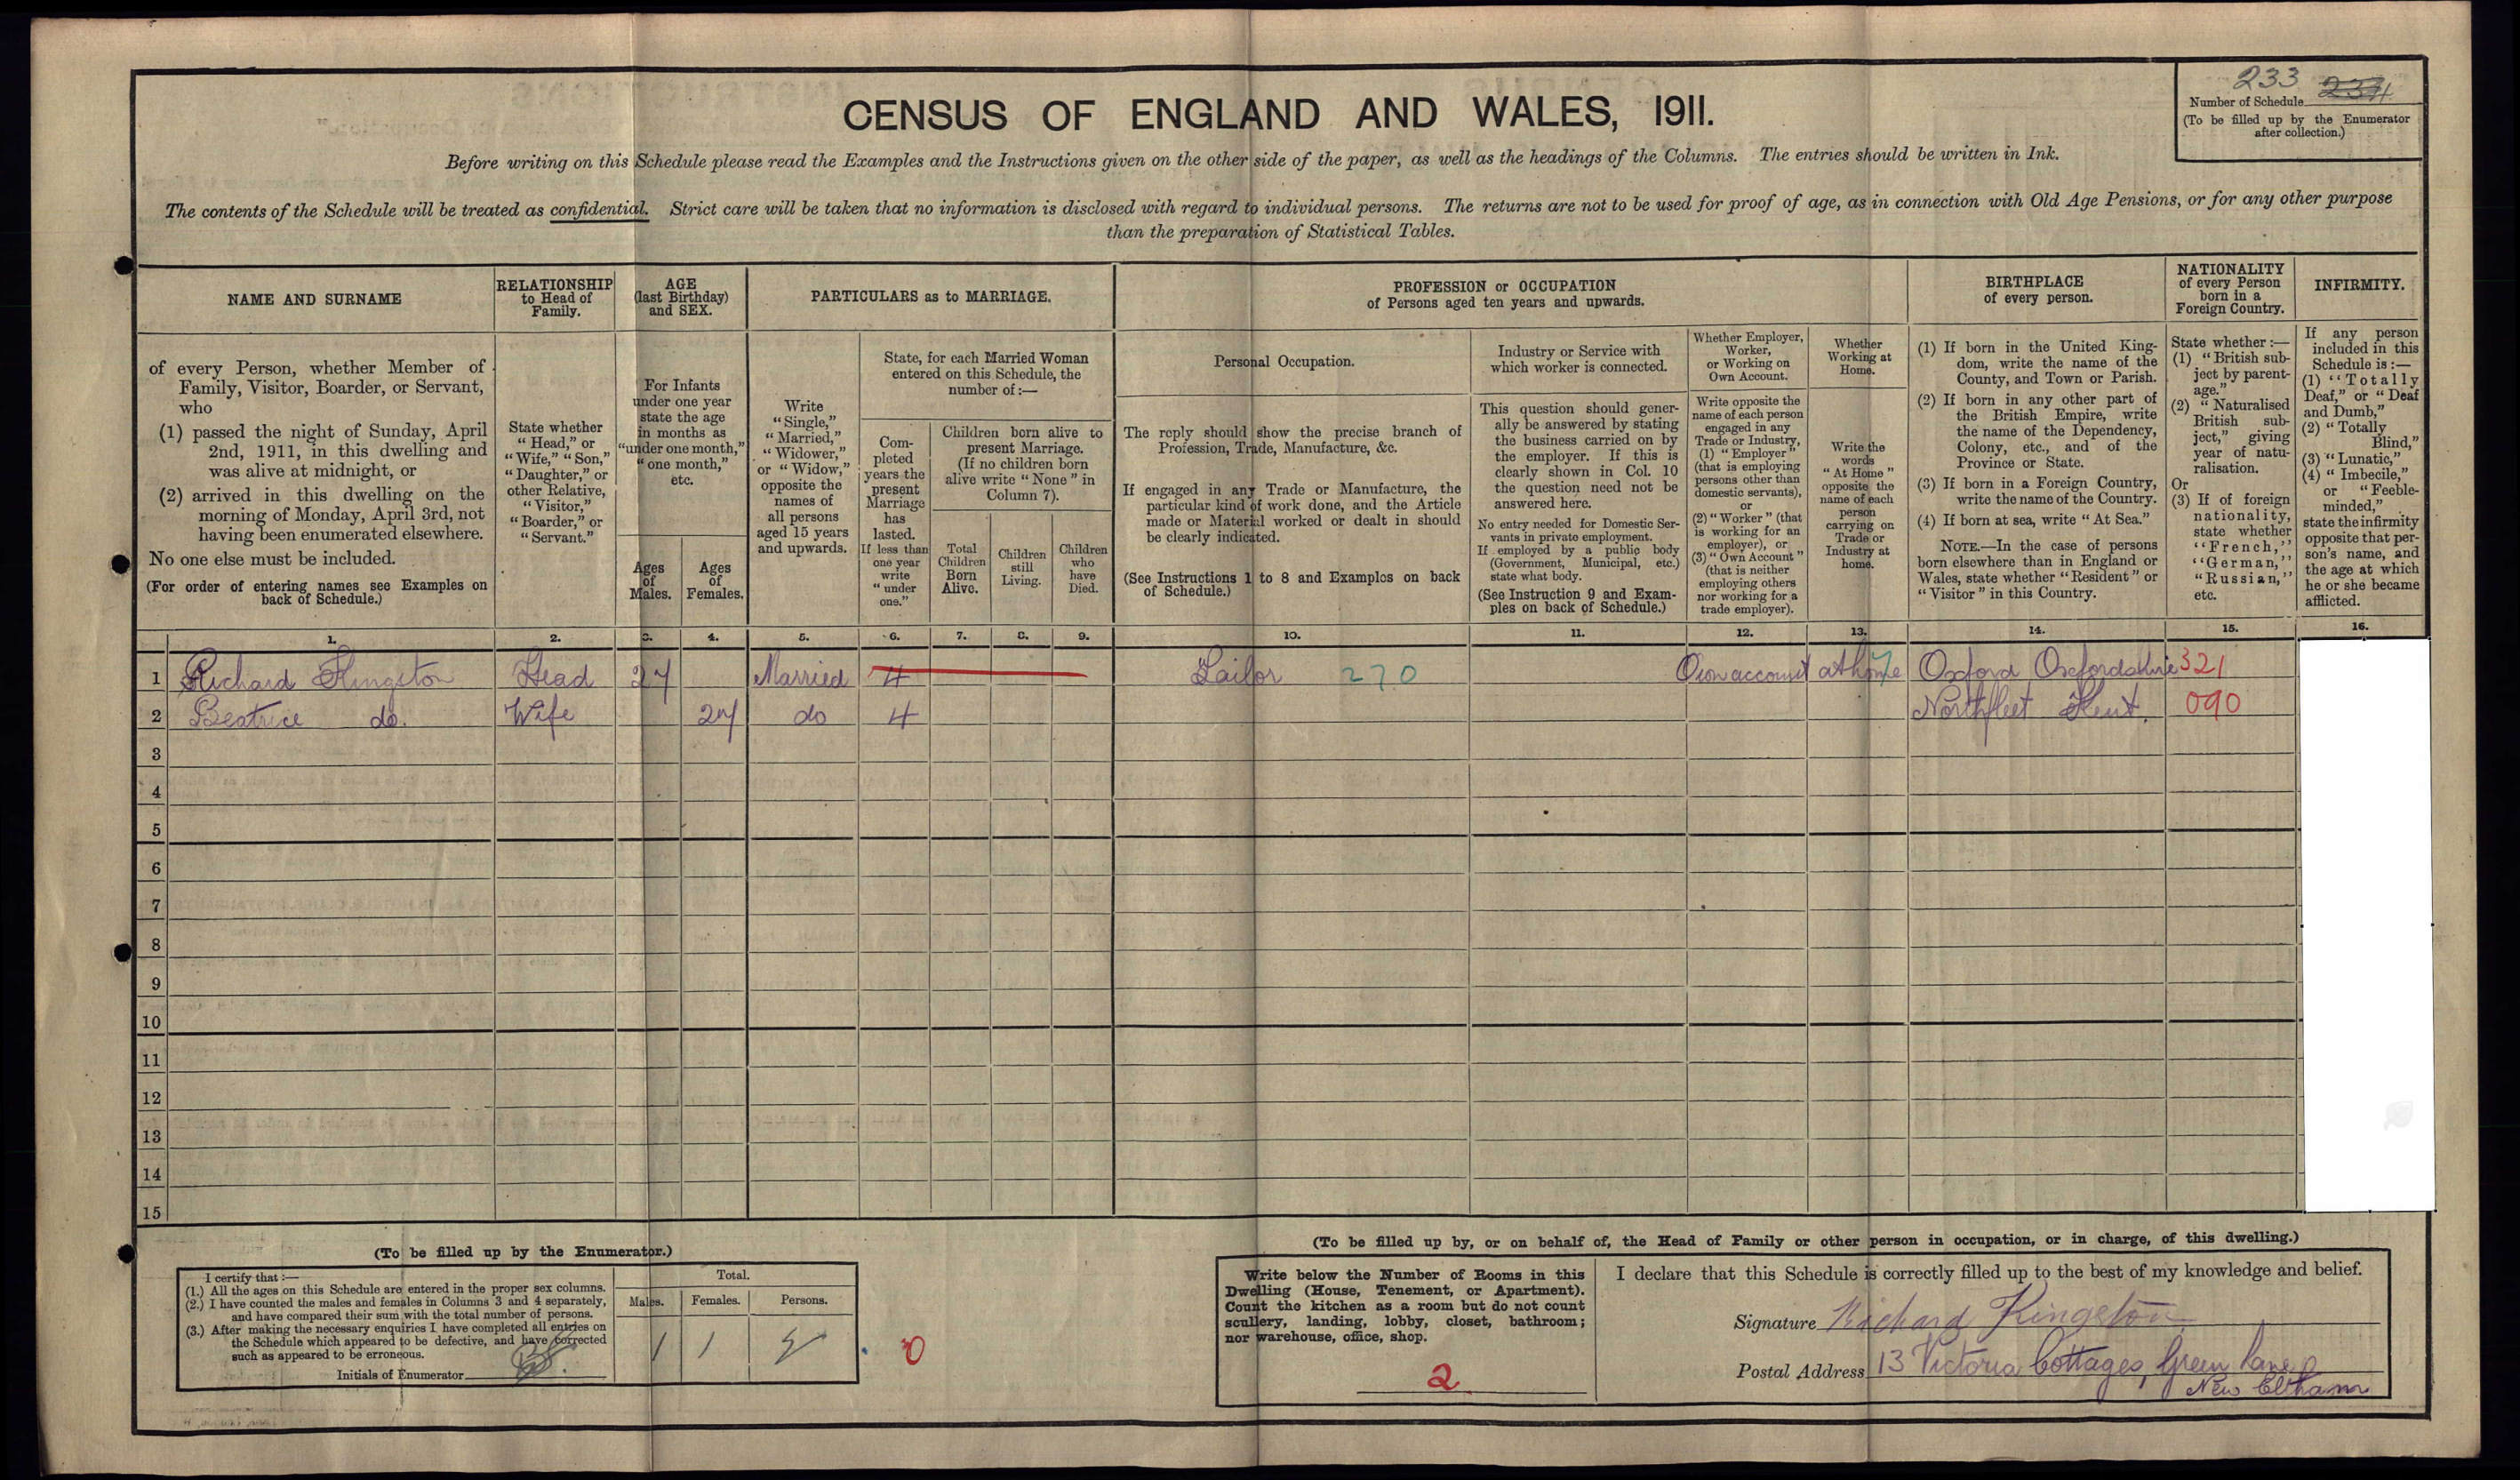 233 234
Number of Schedule
(To be filled up by the Enumerator
after collection.)
CENSUS OF ENGLAND AND WALES, 1911.
Before writing on this Schedule please read the Examples and the Instructions given on the other side of the paper, as well as the headings of the Columns. The entries should be written in Ink.
The contents of the Schedule will be treated as confidential. Strict care will be taken that no information is disclosed with regard to individual persons. The returns are not to be used for proof of age, as in connection with Old Age Pensions, or for any other purpose
than the preparation of Statistical Tables.
NAME AND SURNAME
of every Person, whether Member of
Family, Visitor, Boarder, or Servant,
who
(1) passed the night of Sunday, April
2nd, 1911, in this dwelling and
was alive at midnight, or
(2) arrived in this dwelling on the
morning of Monday, April 3rd, not
having been enumerated elsewhere.
No one else must be included.
(For order of entering names see Examples on
back of Schedule.)
RELATIONSHIP
to Head of
Family.
State whether
"Head," or
"Wife," "Son,"
"Daughter," or
other Relative,
"Visitor,"
"Boarder," or
"Servant."
AGE
(last Birthday)
and SEX.
For Infants
under one year
state the age
in months as
"under one month,"
"one month,"
etc.
Ages
of
Males.
Ages
of
Females.
PARTICULARS as to MARRIAGE.
Write
"Single,"
"Married,"
"Widower,"
or "Widow,"
opposite the
names of
all persons
aged 15 years
and upwards.
State, for each Married Woman
entered on this Schedule, the
number of :—
Com-
pleted
years the
present
Marriage
has
lasted.
If less than
one year
write
"under
one."
Children born alive to
present Marriage.
(If no children born
alive write "None" in
Column 7).
Total
Children
Born
Alive.
Children
still
Living.
Children
who
have
Died.
PROFESSION or OCCUPATION
of Persons aged ten years and upwards.
Personal Occupation.
The reply should show the precise branch of
Profession, Trade, Manufacture, &c.
If engaged in any Trade or Manufacture, the
particular kind of work done, and the Article
made or Material worked or dealt in should
be clearly indicated.
(See Instructions 1 to 8 and Examples on back
of Schedule.)
Industry or Service with
which worker is connected.
This question should gener-
ally be answered by stating
the business carried on by
the employer. If this is
clearly shown in Col. 10
the question need not be
answered here.
No entry needed for Domestic Ser-
vants in private employment.
If employed by a public body
(Government, Municipal, etc.)
state what body.
(See Instruction 9 and Exam-
ples on back of Schedule.)
Whether Employer,
Worker,
or Working on
Own Account.
Write opposite the
name of each person
engaged in any
Trade or Industry,
(1) "Employer"
(that is employing
persons other than
domestic servants),
or
(2) "Worker" (that
is working for an
employer), or
(3) "Own Account"
(that is neither
employing others
nor working for a
trade employer).
Whether
Working at
Home.
Write the
words
"At Home"
opposite the
name of each
person
carrying on
Trade or
Industry at
home.
BIRTHPLACE
of every person.
(1) If born in the United King-
dom, write the name of the
County, and Town or Parish.
(2) If born in any other part of
the British Empire, write
the name of the Dependency,
Colony, etc., and of the
Province or State.
(3) If born in a Foreign Country,
write the name of the Country.
(4) If born at sea, write "At Sea."
NOTE.—In the case of persons
born elsewhere than in England or
Wales, state whether "Resident" or
"Visitor" in this Country.
NATIONALITY
of every Person
born in a
Foreign Country.
State whether :—
(1) "British sub-
ject by parent-
age."
(2) "Naturalised
British sub-
ject," giving
year of natu-
ralisation.
Or
(3) If of foreign
nationality,
state whether
"French,"
"German,"
"Russian,"
etc.
INFIRMITY.
If any person
included in this
Schedule is :—
(1) "Totally
Deaf," or "Deaf
and Dumb,"
(2) "Totally
Blind,"
(3) "Lunatic,"
(4) "Imbecile,"
or "Feeble-
minded,"
state the infirmity
opposite that per-
son's name, and
the age at which
he or she became
afflicted.
1. 2. 3. 4. 5. 6. 7. 8. 9. 10. 11. 12. 13. 14. 15. 16.
1 Richard Kingston Head 27 Married 4 Tailor 270 Own account at home Oxford Oxfordshire 321
2 Beatrice do. Wife 27 do 4 Northfleet Kent. 090
3
4
5
6
7
8
9
10
11
12
13
14
15
(To be filled up by the Enumerator.)
I certify that :—
(1.) All the ages on this Schedule are entered in the proper sex columns.
(2.) I have counted the males and females in Columns 3 and 4 separately,
and have compared their sum with the total number of persons.
(3.) After making the necessary enquiries I have completed all entries on
the Schedule which appeared to be defective, and have corrected
such as appeared to be erroneous.
Initials of Enumerator
Total.
Males. Females. Persons.
1 1 2
0
(To be filled up by, or on behalf of, the Head of Family or other person in occupation, or in charge, of this dwelling.)
Write below the Number of Rooms in this
Dwelling (House, Tenement, or Apartment).
Count the kitchen as a room but do not count
scullery, landing, lobby, closet, bathroom;
nor warehouse, office, shop.
2
I declare that this Schedule is correctly filled up to the best of my knowledge and belief.
Signature Richard Kingston
Postal Address 13 Victoria Cottages, Green Lane
New Eltham